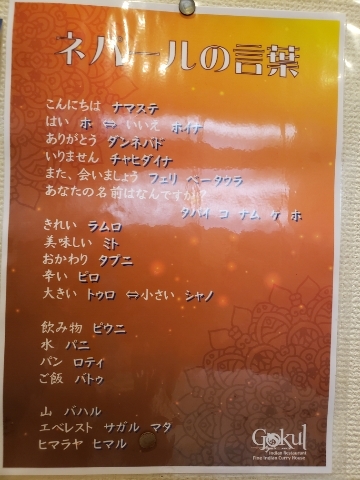 ネパールの言葉
こんにちは ナマステ
はい ホ ⇔ いいえ ホイナ
ありがとう ダンネバド
いりません チャヒダイナ
また、会いましょう フェリ ベータウラ
あなたの名前はなんですか?
タパイ コ ナム ケ ホ
きれい ラムロ
美味しい ミト
おかわり タプニ
辛い ピロ
大きい トゥロ ⇔小さい シャノ
飲み物 ピウニ
水 パニ
パン ロティ
ご飯 バトゥ
山 パハル
エベレスト サガル マタ
ヒマラヤ ヒマル
Gokul
Indian Restaurant
Fine Indian Curry House